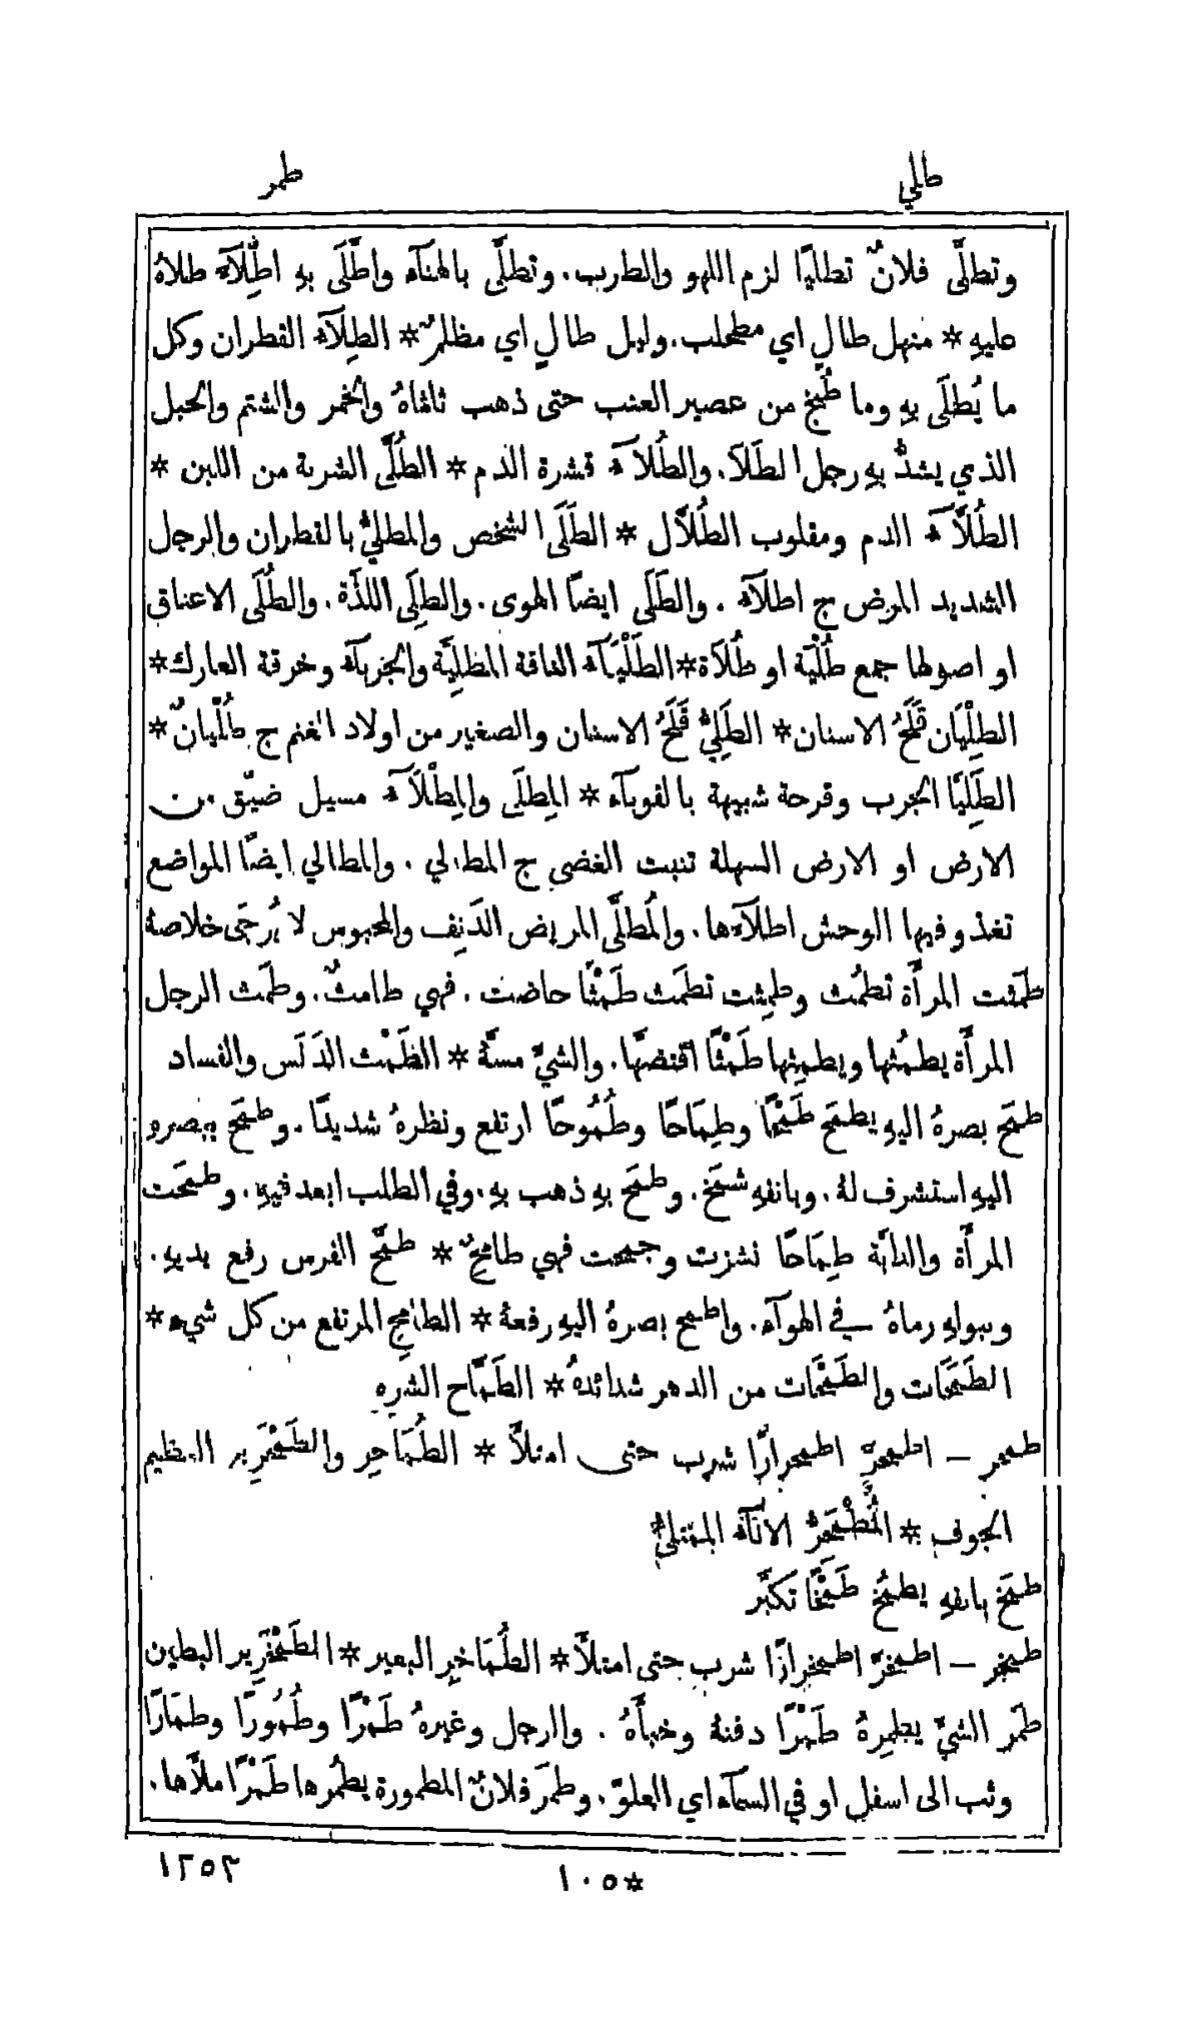 طلي
طمر
وتطلَّى فلانٌ تطليًا لزم اللهو والطرب. وتطلَّى بالهنَآء واطَّلَى به اطِّلَآءً طلاهُ
عليهِ * منهل طالٍ اي مطحلب. وليل طالٍ اي مظلمٌ * الطِلَآء القطران وكل
ما يُطلَى بهِ وما طُبخ من عصير العنب حتى ذهب ثلثاهُ والخمر والشتم والحبل
الذي يشدُّ بهِ رجل الطَلَا. والطُلآء قشرة الدم * الطُلَّى الشربة من اللبن *
الطُلَّآء الدم ومقلوب الطُلَّال * الطَلَى الشخص والمطليُّ بالقطران والرجل
الشديد المرض ج اطلَآء. والطَلَى ايضًا الهوى. والطِلَى اللذَّة. والطُلَى الاعناق
او اصولها جمع طُلْيَة او طُلَاة * الطَلْيَآء الناقة المطليَّة والجَربآء وخرقة العارك *
الطِلْيَان قَلَحُ الاسنان * الطَلِيُّ قَلَحُ الاسنان والصغير من اولاد الغنم ج طُلْيانٌ *
الطَلِيَّا الجرب وقرحة شبيهة بالقوبآء * المِطلَى والمِطْلَآء مسيل ضيّق من
الارض او الارض السهلة تنبت الغضى ج المطالي. والمطالي ايضًا المواضع
تغذو فيها الوحش اطلآءها. والمُطلَّى المريض الدَنِف والمحبوس لا يُرجَى خلاصهُ
طمَثت المرأَة تطمُث وطمِثت تطمَث طَمْثًا حاضت. فهي طامثٌ. وطمَث الرجل
المرأَة يطمُثها ويطمِثها طَمْثًا افتضَّها. والشيَّ مسَّهُ * الطَمْث الدَنَس والفساد
طمَح بصرهُ اليهِ يطمَح طَمْحًا وطِمَاحًا وطُمُوحًا ارتفع ونظرهُ شديدًا. وطمَح ببصرهِ
اليهِ استشرف لهُ. وبانفهِ شمَخ. وطمَح بهِ ذهب بهِ. وفي الطلب ابعد فيهِ. وطمَحَت
المرأَة والدابَّة طِمَاحًا نشزت وجمحت فهي طامحٌ * طمَّح الفرس رفع يديهِ.
وببولهِ رماهُ في الهوآء. واطمح بصرهُ اليهِ رفعهُ * الطامِح المرتفع من كل شيء *
الطَمَحَات والطَمْحَات من الدهر شدائدهُ * الطَمَّاح الشرِه
طمحر – اطمحرَّ اطمحرارًا شرب حتى امتلأَ * الطُمَاحِر والطَمْحَرِير العظيم
الجوف * المُطْمَحِرُّ الانآء الممتلئُ
طمَخ بانفهِ يطمَخ طَمْخًا تكبَّر
طمخر – اطمخرَّ اطمخرارًا شرب حتى امتلأَ * الطُمَاخِر البعير * الطَمْخَرِير البطين
طمَر الشيَّ يطمِرهُ طَمْرًا دفنهُ وخبأَهُ. والرجل وغيرهُ طَمْرًا وطُمُورًا وطِمَارًا
وثب الى اسفل او في السمآء اي العلوّ. وطمَر فلانٌ المطمورة يطمُرها طَمْرًا ملأَها.
١٢٥٣
*١٠٥